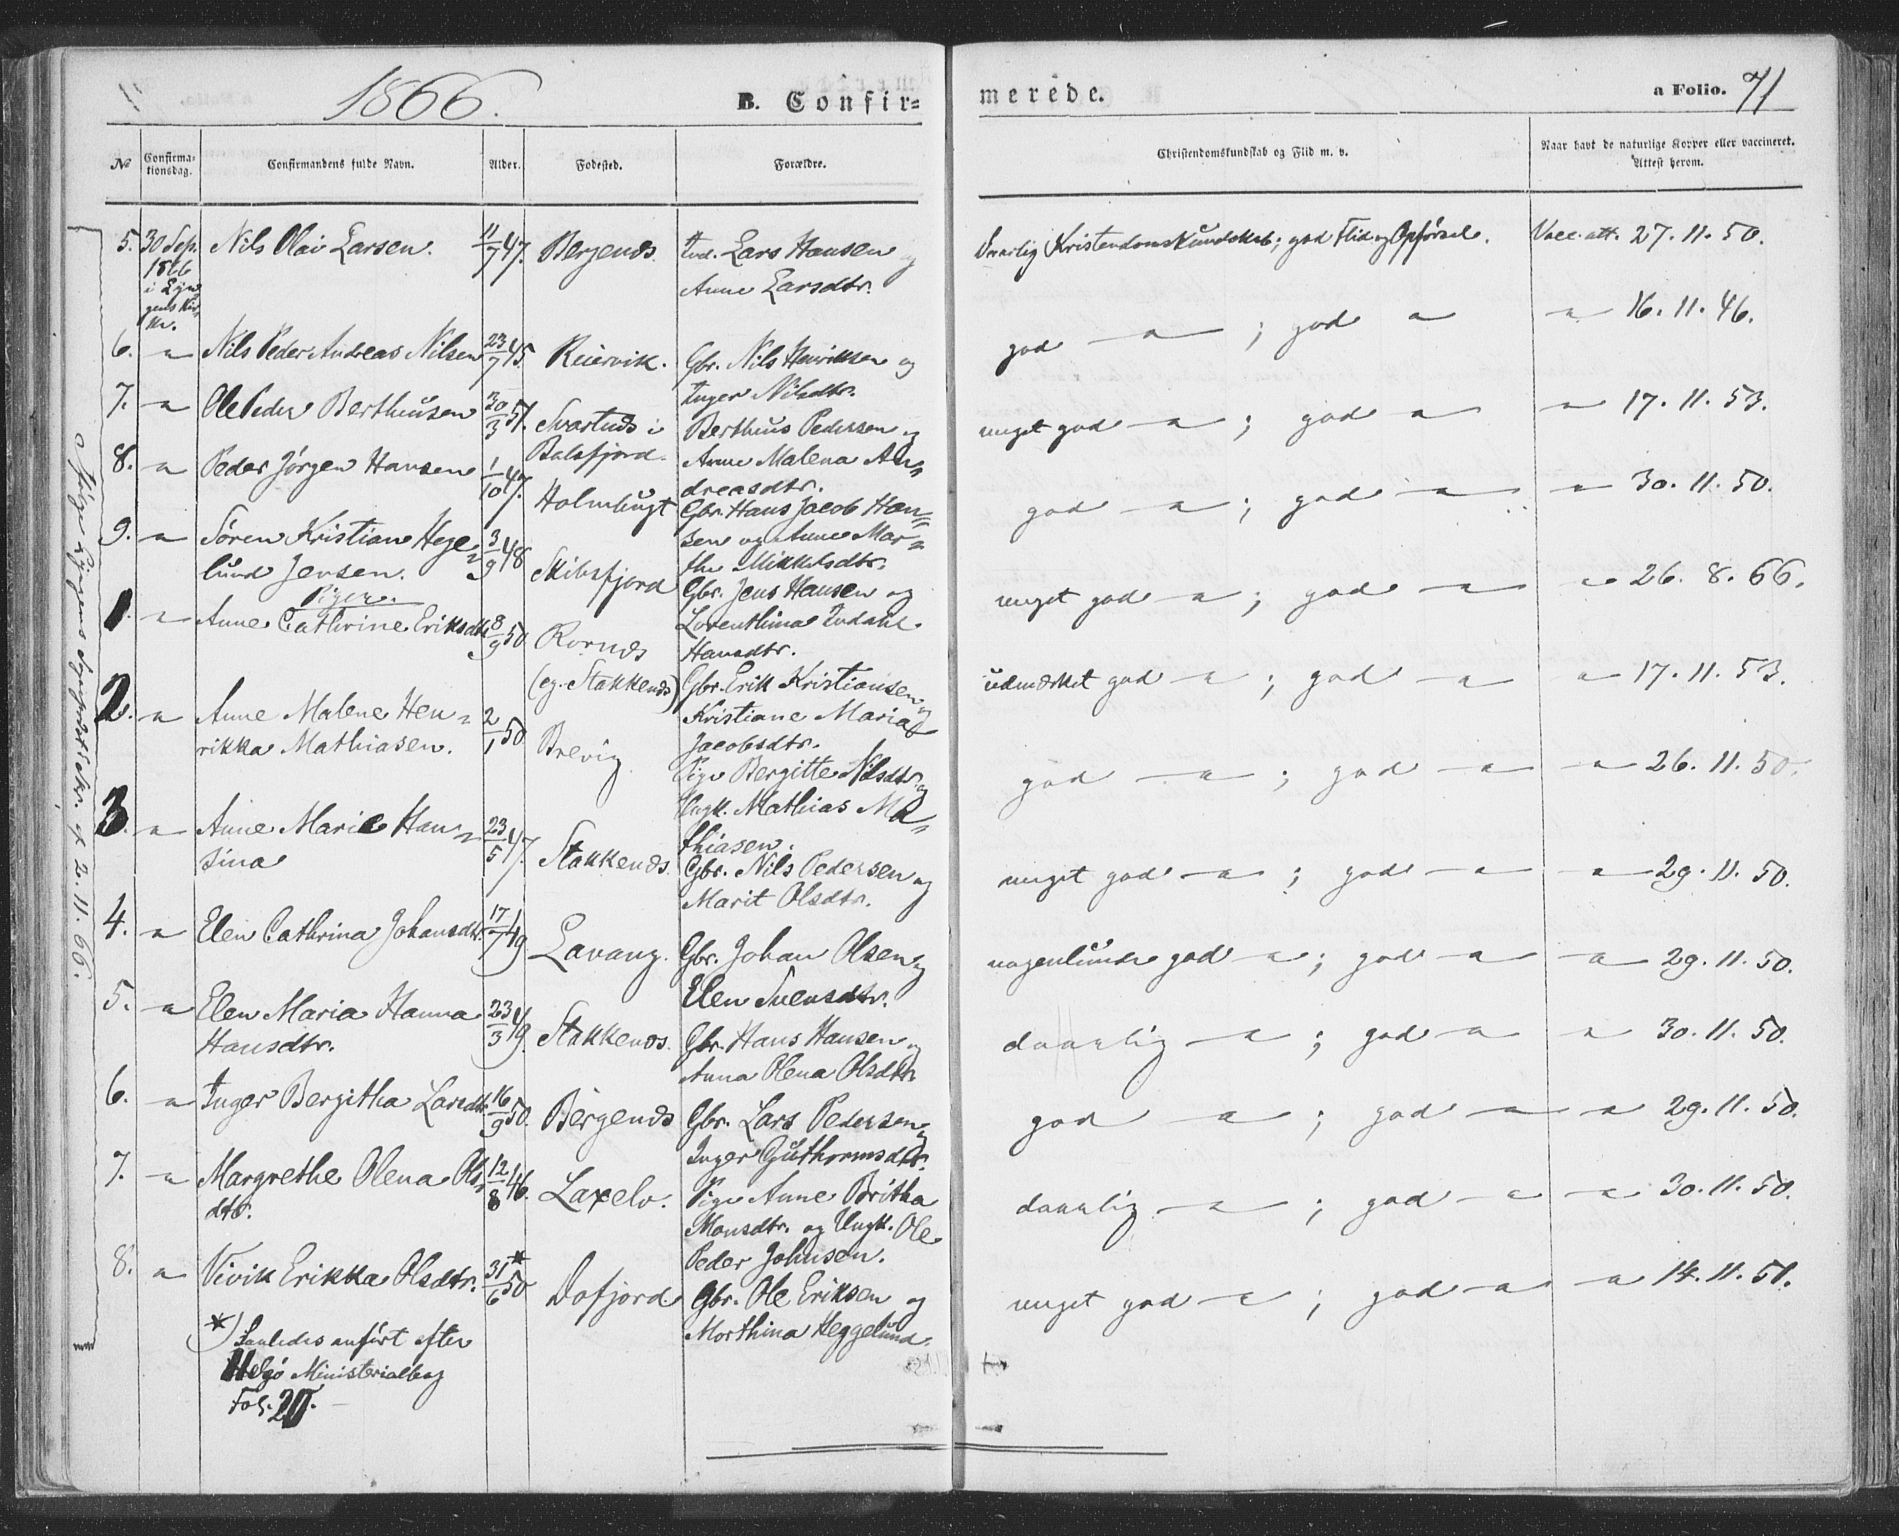 1866.
B. Confir=
merede.
a Folio. 71
No
Confirma-
tionsdag.
Confirmandens fulde Navn.
Alder.
Fødested.
Forældre.
Christendomskundskab og Flid m. v.
Naar havt de naturlige Kopper eller vaccineret.
Attest herom.
5. 30 Sep. Nils Olai Larsen. 11/7 47. Bergenes. Ind. Lars Hansen og
1866
i Lyn
gens Kir
ke.
Anne Larsdtr.
Daarlig Kristendomskundskab; god Flid og Opførsel. Vacc. att. 27. 11. 50.
6. " Nils Peder Andreas Nilsen 23/7 45. Reiervik. Gbr. Nils Henriksen og
Inger Nilsdtr.
god — " — ; god " " 16. 11. 46.
7. " Ole Peder Bertheusen 30/3 51. Svartnes i
Balsfjord.
Bertheus Pedersen og
Anne Malena An=
dreasdtr.
meget god — " — ; god " — " 17. 11. 53.
8. " Peder Jørgen Hansen 1/10 47. Holmbugt
Gbr. Hans Jacob Han=
sen og Anne Mar=
the Mikkelsdtr.
god — " — ; god — " — " 30. 11. 50.
9. " Søren Kristian Hege=
lund Jensen. 3/9 48 Skibsfjord
Gbr. Jens Hansen og
Lorenthina
Hansdtr.
meget god — " — ; god — " — " 26. 8. 66.
Piger.
1. " Anne Cathrine Eriksdtr. 8/9 50. Rornes
(eg. Stakkenes)
Gbr. Erik Kristiansen og
Kristiane Maria
Jacobsdtr.
udmærket god — " — ; god — " " 17. 11. 53.
2. " Anne Malene Hen=
rikka Mathiasen. 2/1 50 Brevig
Pige Bergitte Nilsdtr. og
Ungk. Mathias Ma=
thiasen.
god — " — ; god — " — " 26. 11. 50.
3. " Anne Marie Han=
sina 23/5 47. Stakkenes.
Gbr. Nils Pedersen og
Marit Olsdtr.
meget god — " — ; god — " — " 29. 11. 50.
4. " Elen Cathrina Johansdtr. 17/7 49 Lavang. Gbr. Johan Olsen og
Elen Svensdtr.
nogenlunde god — " ; god — " — " 29. 11. 50.
5. " Elen Maria Hanna
Hansdtr. 23/3 49. Stakkenes. Gbr. Hans Hansen og
Anna Olena Olsdtr.
daarlig — " — ; god — " " 30. 11. 50.
6. " Inger Bergitha Larsdtr. 16/9 50. Bergenes Gbr. Lars Pedersen og
Inger Guthormsdtr.
god — " — ; god — " — " 29. 11. 50.
7. " Margrethe Olena Ols=
dtr. 12/8 46. Laxelv. Pige Anne Britha
Monsdtr. og Ungk. Ole
Peder Johnsen.
daarlig — " — ; god — " — " 30. 11. 50.
8. " Vivik Erikka Olsdtr. 31/6 50 * Dofjord Gbr. Ole Eriksen og
Morthina Heggelund.
meget god — " — ; god — " — " 14. 11. 51.
*) Saaledes anført efter
Helgø Ministerialbog
Fol. 20.
Ifølge Lyngens Sognepræst skr. af 2. 11. 66.